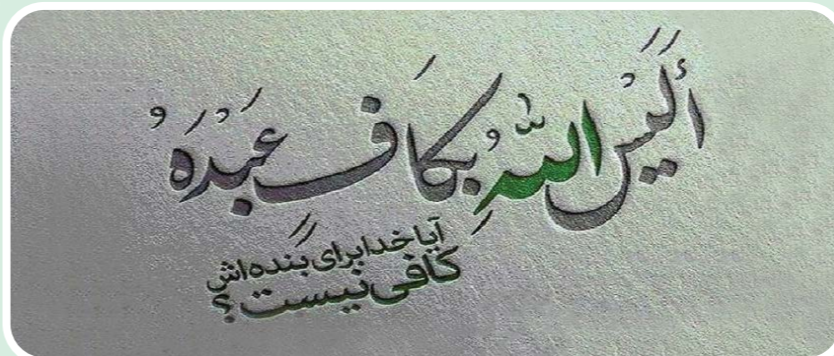 أَلَيْسَ اللّٰهُ بِكَافٍ عَبْدَهُ
آیا خدا برای بنده‌اش
کافی نیست؟